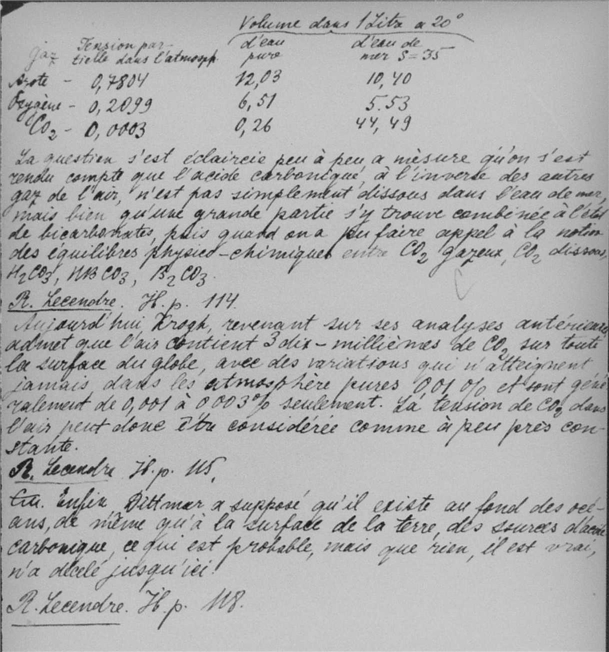 Volume dans 1 Litre a 20°
gaz Tension par- d'eau d'eau de
tielle dans l'atmosph pure mer S=35
Azote - 0,7804 12,03 10,40
Oxygène - 0,2099 6,51 5.53
CO2 - 0,0003 0,26 44,49
La question s'est éclaircie peu à peu a mesure qu'on s'est
rendu compte que l'acide carbonique, à l'inverse des autres
gaz de l'air, n'est pas simplement dissous dans l'eau de mer,
mais bien qu'une grande partie s'y trouve combinée à l'état
de bicarbonates, puis quand on a pu faire appel à la notion
des équilibres physico-chimiques entre CO2 gazeux, CO2 dissous,
H2CO3, HBCO3, B2CO3.
R. Lecendre. H. p. 114.
Aujourd'hui, Krogh, revenant sur ses analyses antérieures
admet que l'air contient 3 dix-millièmes de CO2 sur toute
la surface du globe, avec des variations qui n'atteignent
jamais dans les atmosphère pures 0,01% et sont géné
ralement de 0,001 à 0,003% seulement. La tension de CO2 dans
l'air peut donc être considérée comme à peu près con-
stante.
R. Lecendre H. p. 115.
Enfin Dittmar a supposé qu'il existe au fond des océ-
ans, de même qu'à la surface de la terre, des sources d'acide
carbonique, ce qui est probable, mais que rien, il est vrai,
n'a décelé jusqu'ici!
R. Lecendre. H. p. 118.